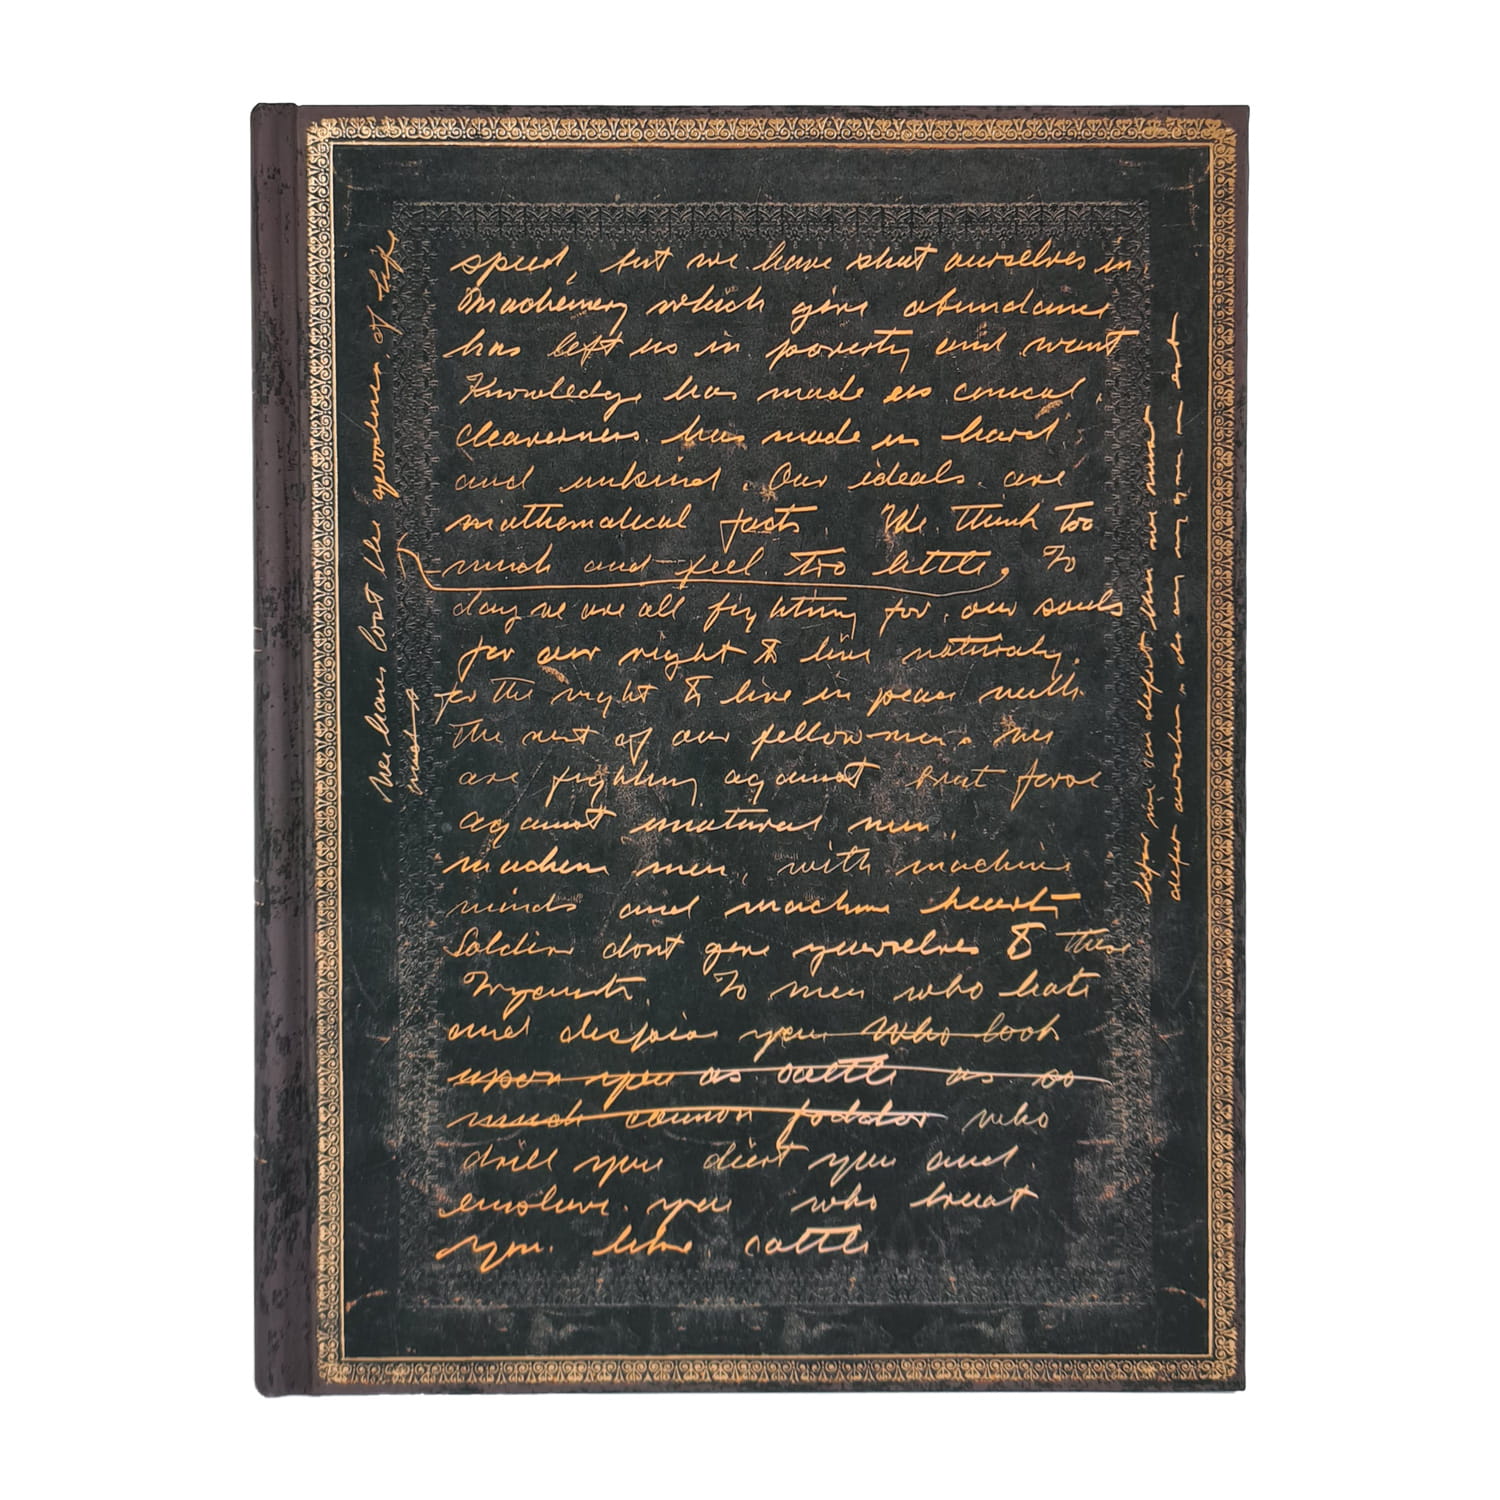 speed, but we have shut ourselves in
Machinery which give abundance
has left us in poverty and want
Knowledge has made us cinical,
cleaverness has made us hard
and unkind. Our ideals are
mathematical facts. We think too
much and feel too little. To
day we are all fighting for our souls
for our right to live naturaly.
for the right to live in peace with
the rest of our fellow men. We
are fighting against brut force
against unatural men,
machine men, with machine
minds and machine hearts
Soldiers dont give yourselves to these
To men who hate
and despise you who look
upon you as cattle as so
much cannon fodder who
drill you diert you and
enslave you who treat
you like cattle
We have lost the goodness of life